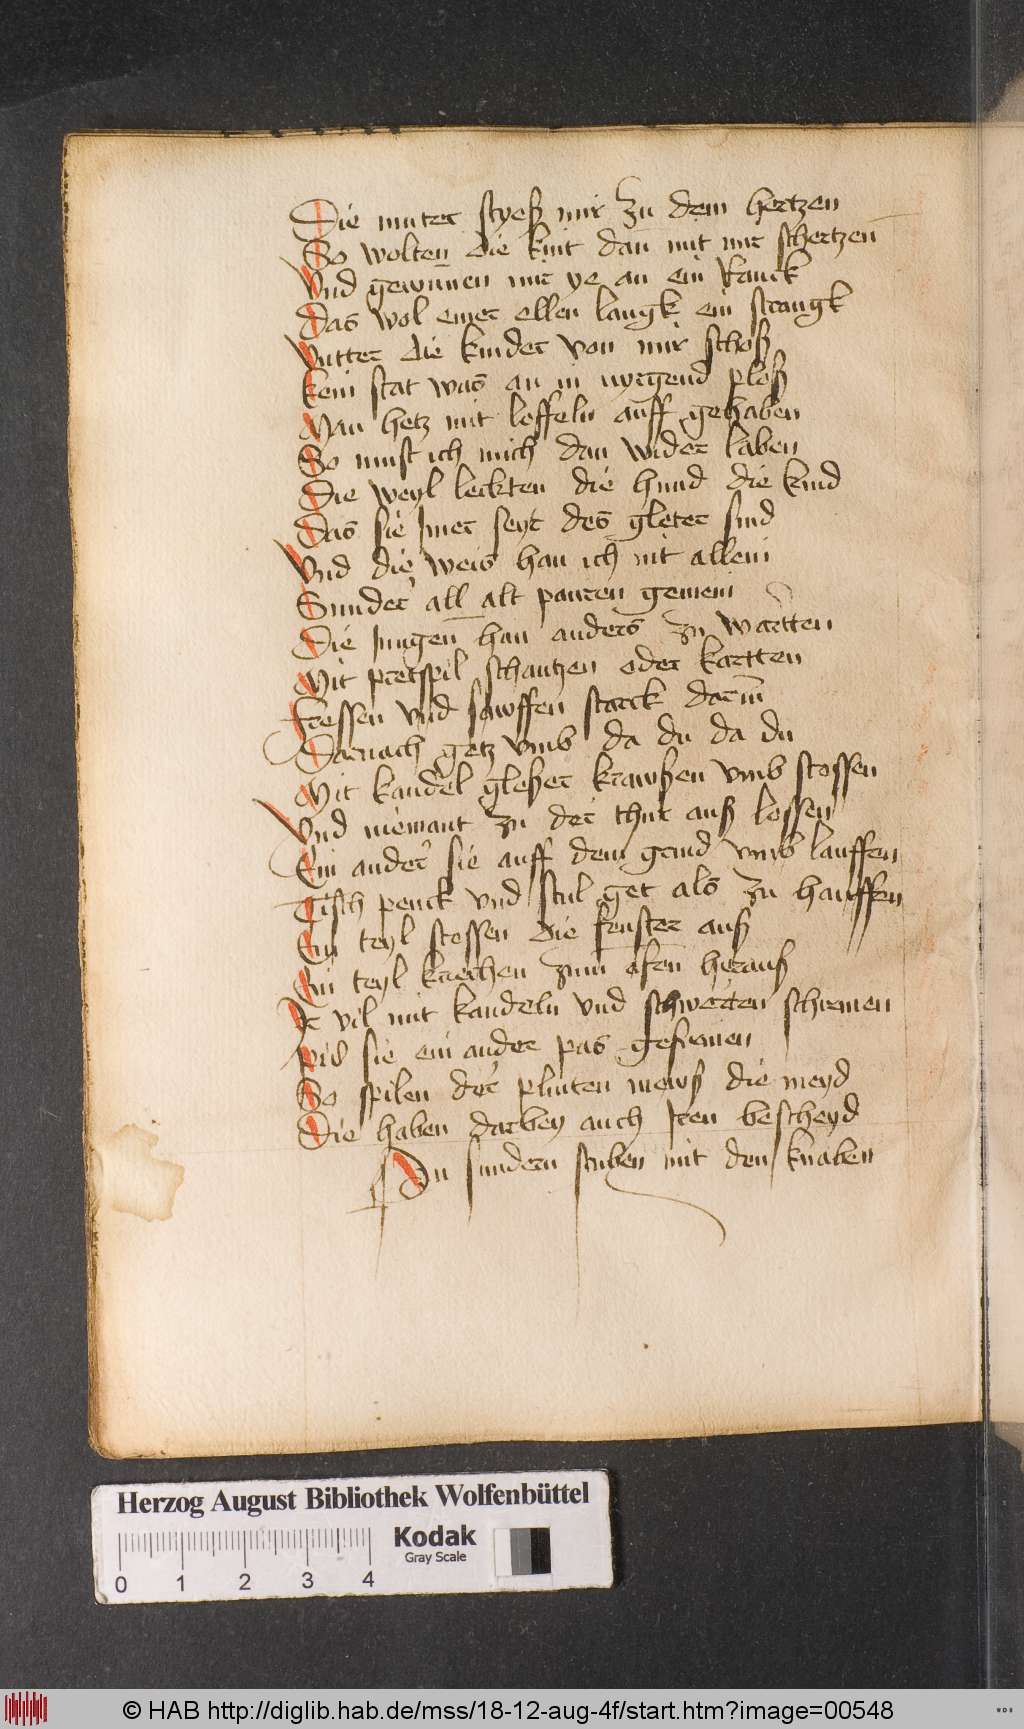 Die muter styeß mir zu dem hertzen
So wolten die kint dan mit mir schertzen
Vnd gewunnen mir ye an ein kanck
Das wol einer ellen langk ein strangk
Vnter die kinder von mir schoß
kein stat was an in nyrgend ploß
Man hetz mit leffeln auff gehaben
So must ich mich dan wider laben
Die weyl leckten die hund die kind
Das sie Imer seyt des gleter sind
Vnd die weis han ich nit allein
Sunder all alt pauren gemein
Die Jungen han anders zu wartten
Mit pretspil schantzen oder kartten
fressen vnd sawffen starck darin
Darnach getz vmb da du da du
Mit kandel gleßer krawßen vmb stossen
Vnd niemant zu der thur auß lossen
Ein ander sie auff dem grind vmb lauffen
Tisch penck vnd stul get als zu hauffen
Ein teyl stossen die fenster auß
Ein teyl kriechen zum ofen herauß
Ir vil mit kandeln vnd schwerten schirmen
piß sie ein ander pas gefirmen
So spilen der plinten mewß die meyd
Die haben darbey auch Iren bescheyd
In sundern stuben mit den knaben
Herzog August Bibliothek Wolfenbüttel
Kodak
Gray Scale
0 1 2 3 4
© HAB http://diglib.hab.de/mss/18-12-aug-4f/start.htm?image=00548